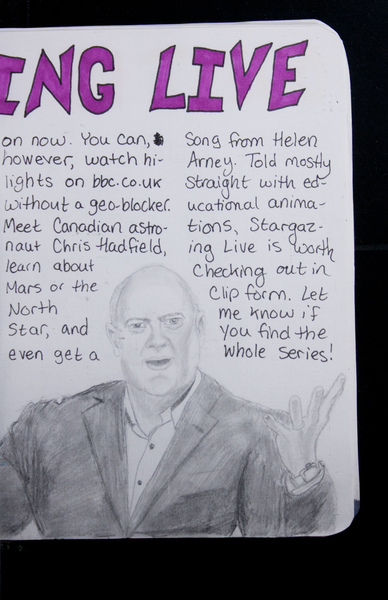 ING LIVE
on now. You can,
however, watch hi-
lights on bbc.co.uk
without a geo-blocker.
Meet Canadian astro-
naut Chris Hadfield,
learn about
Mars or the
North
Star, and
even get a
song from Helen
Arney. Told mostly
straight with ed-
ucational anima-
tions, Stargaz-
ing Live is worth
checking out in
clip form. Let
me know if
you find the
whole series!